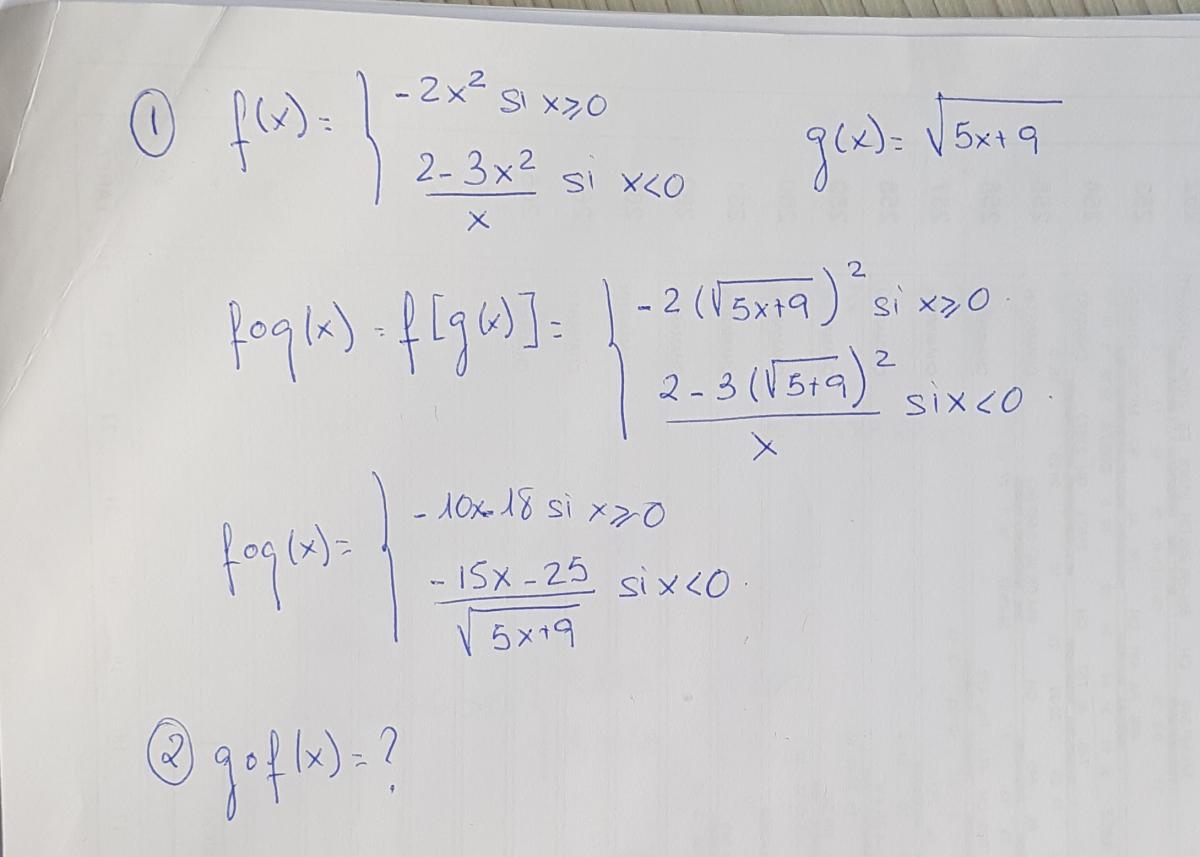 ① f(x) = { -2x² si x⩾0
(2-3x²)/x si x<0
g(x) = √(5x+9)
fog(x) = f[g(x)] = { -2(√(5x+9))² si x⩾0.
(2-3(√(5+9))²)/x si x<0.
fog(x) = { -10x-18 si x⩾0
(-15x-25)/√(5x+9) si x<0.
② gof(x) = ?